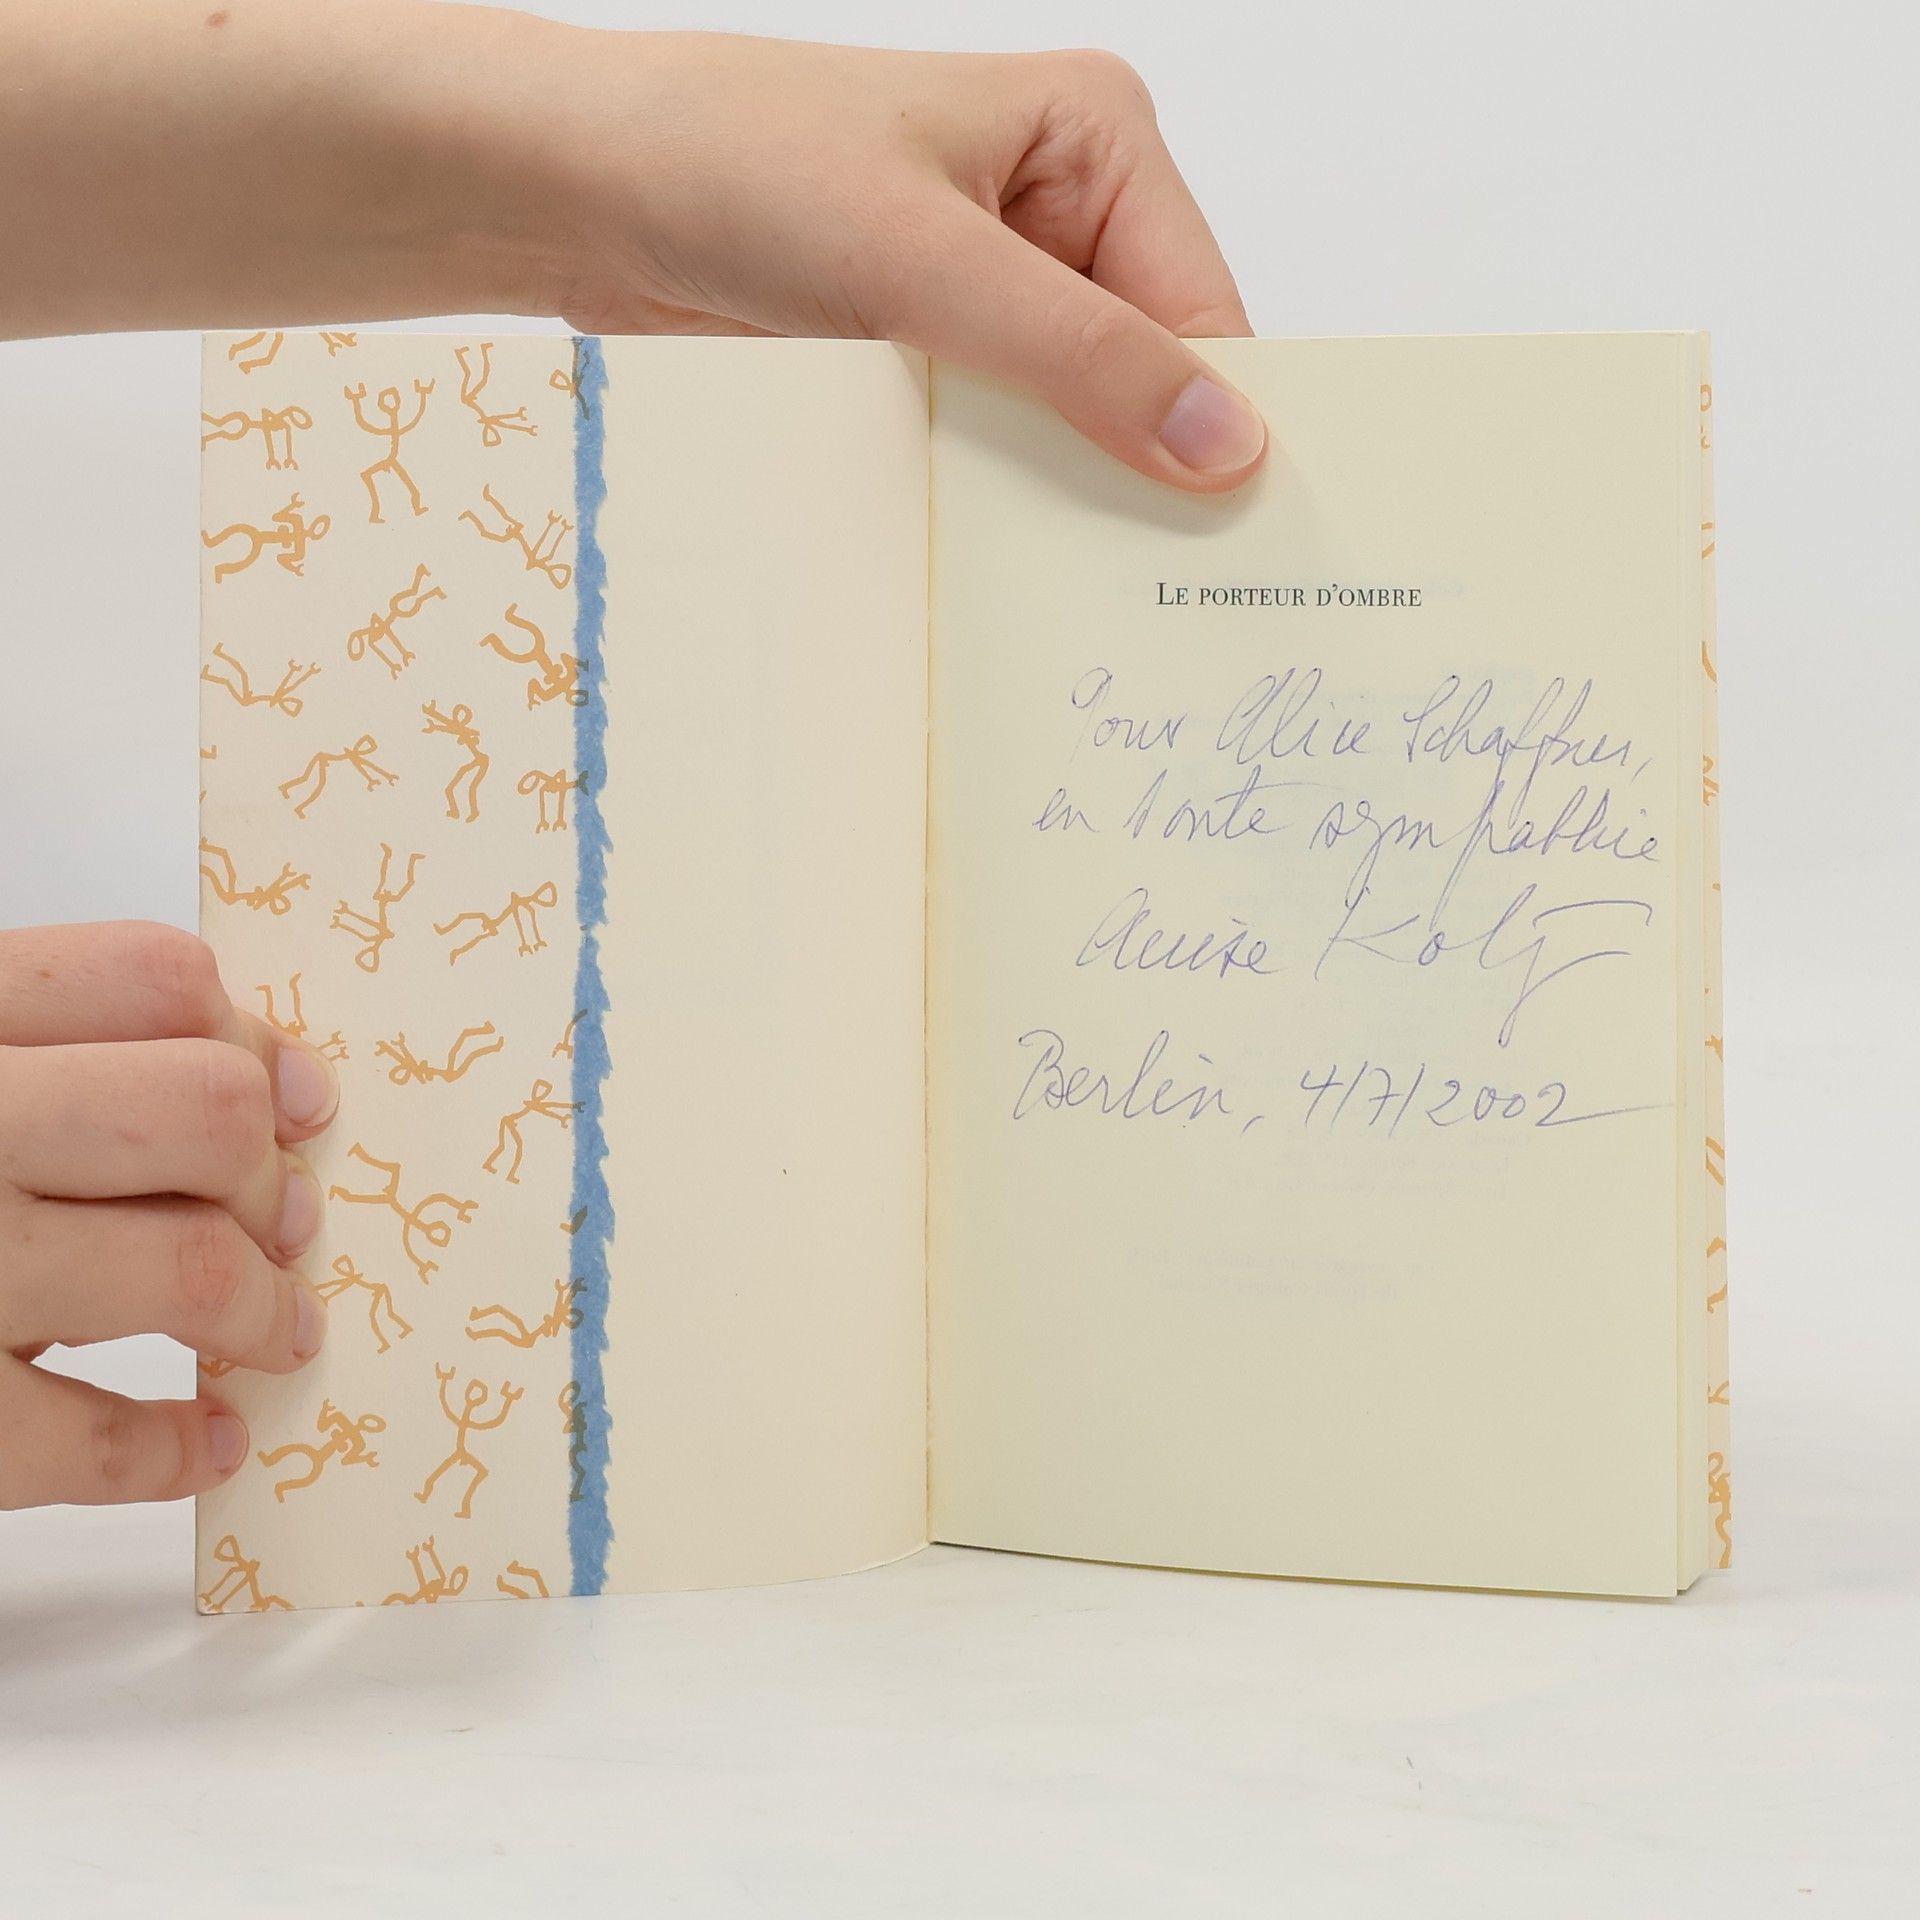 LE PORTEUR D'OMBRE
Pour Alice Schaffner,
en toute sympathie
Anise Koltz
Berlin, 4/7/2002